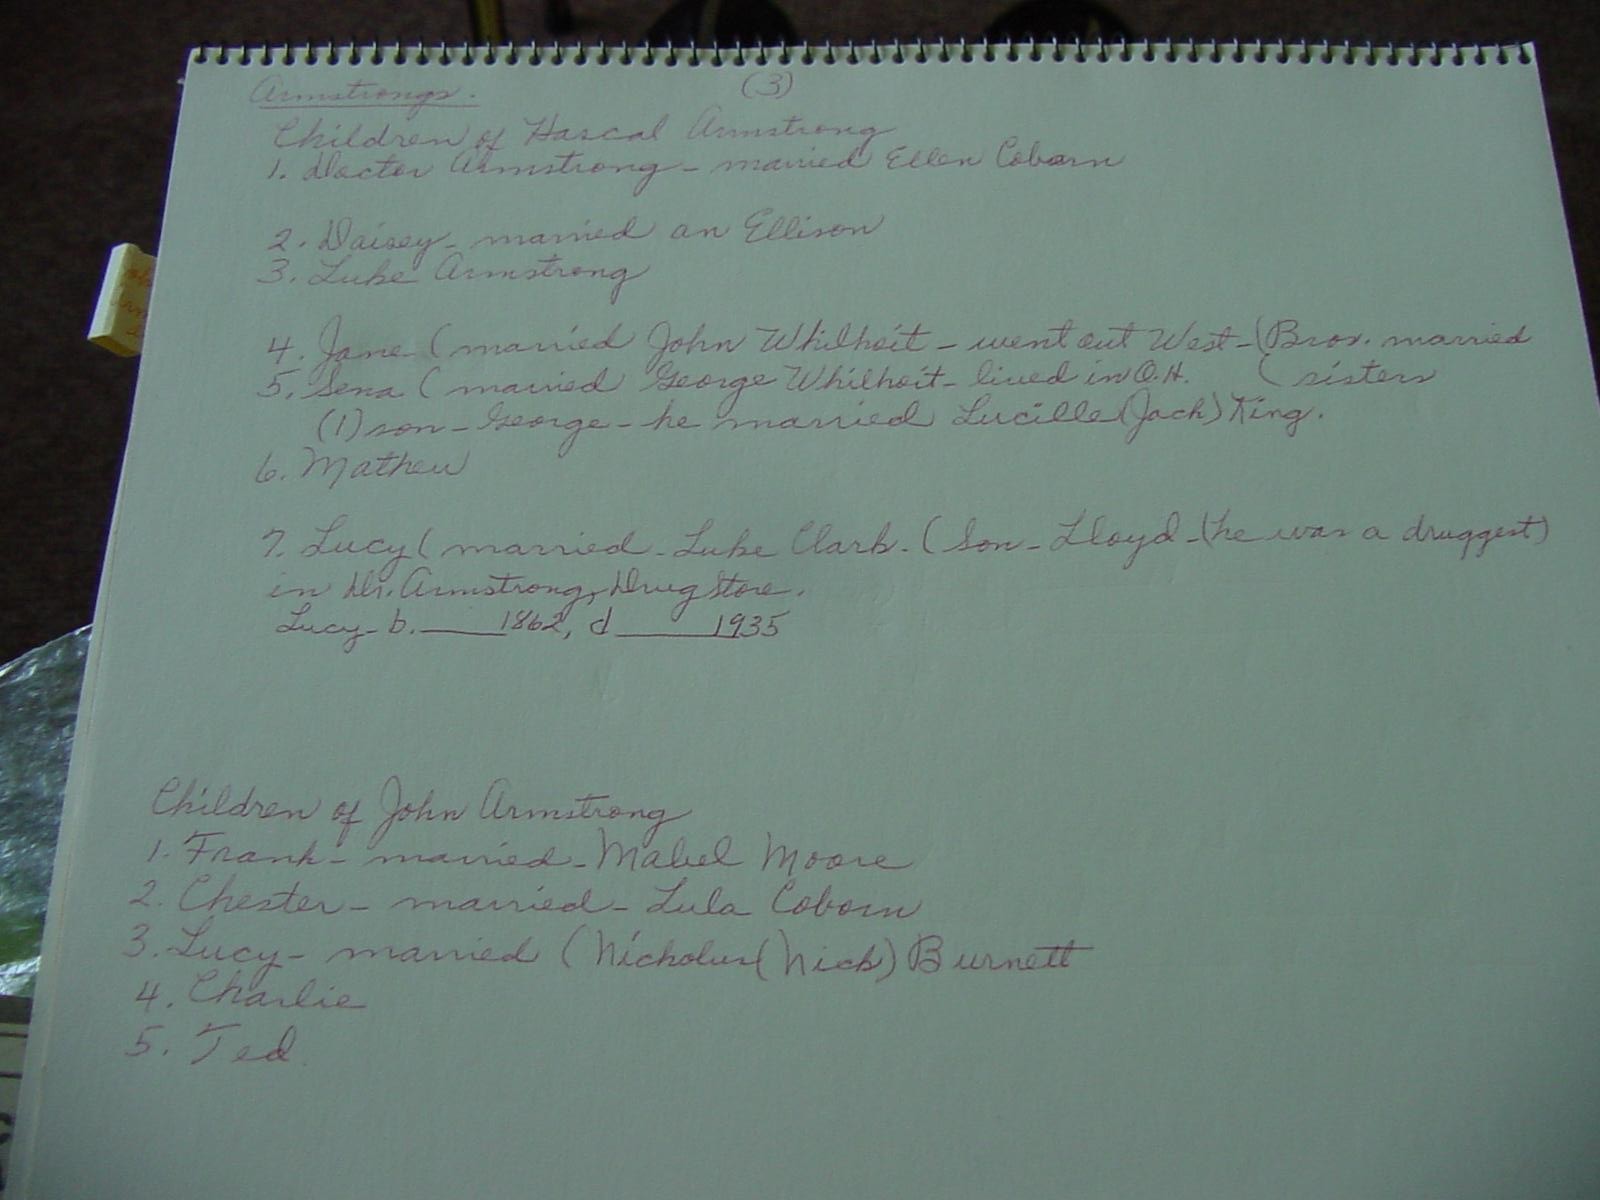 Armstrongs. (3)
Children of Hascal Armstrong
1. Doctor Armstrong - married Ellen Coborn
2. Daisey - married an Ellison
3. Luke Armstrong
4. Jane (married John Whilhoit - went out West - (Bros. married
5. Sena (married George Whilhoit - lived in O.H. ( sisters
(1) son - George - he married Lucille (Jack) King.
6. Mathew
7. Lucy (married - Luke Clark. (Son - Lloyd - (he was a druggest)
in Dr. Armstrong, Drug Store.
Lucy - b. ____ 1862, d ____ 1935
Children of John Armstrong
1. Frank - married - Mabel Moore
2. Chester - married - Lula Coborn
3. Lucy - married (Nicholus (Nick) Burnett
4. Charlie
5. Ted